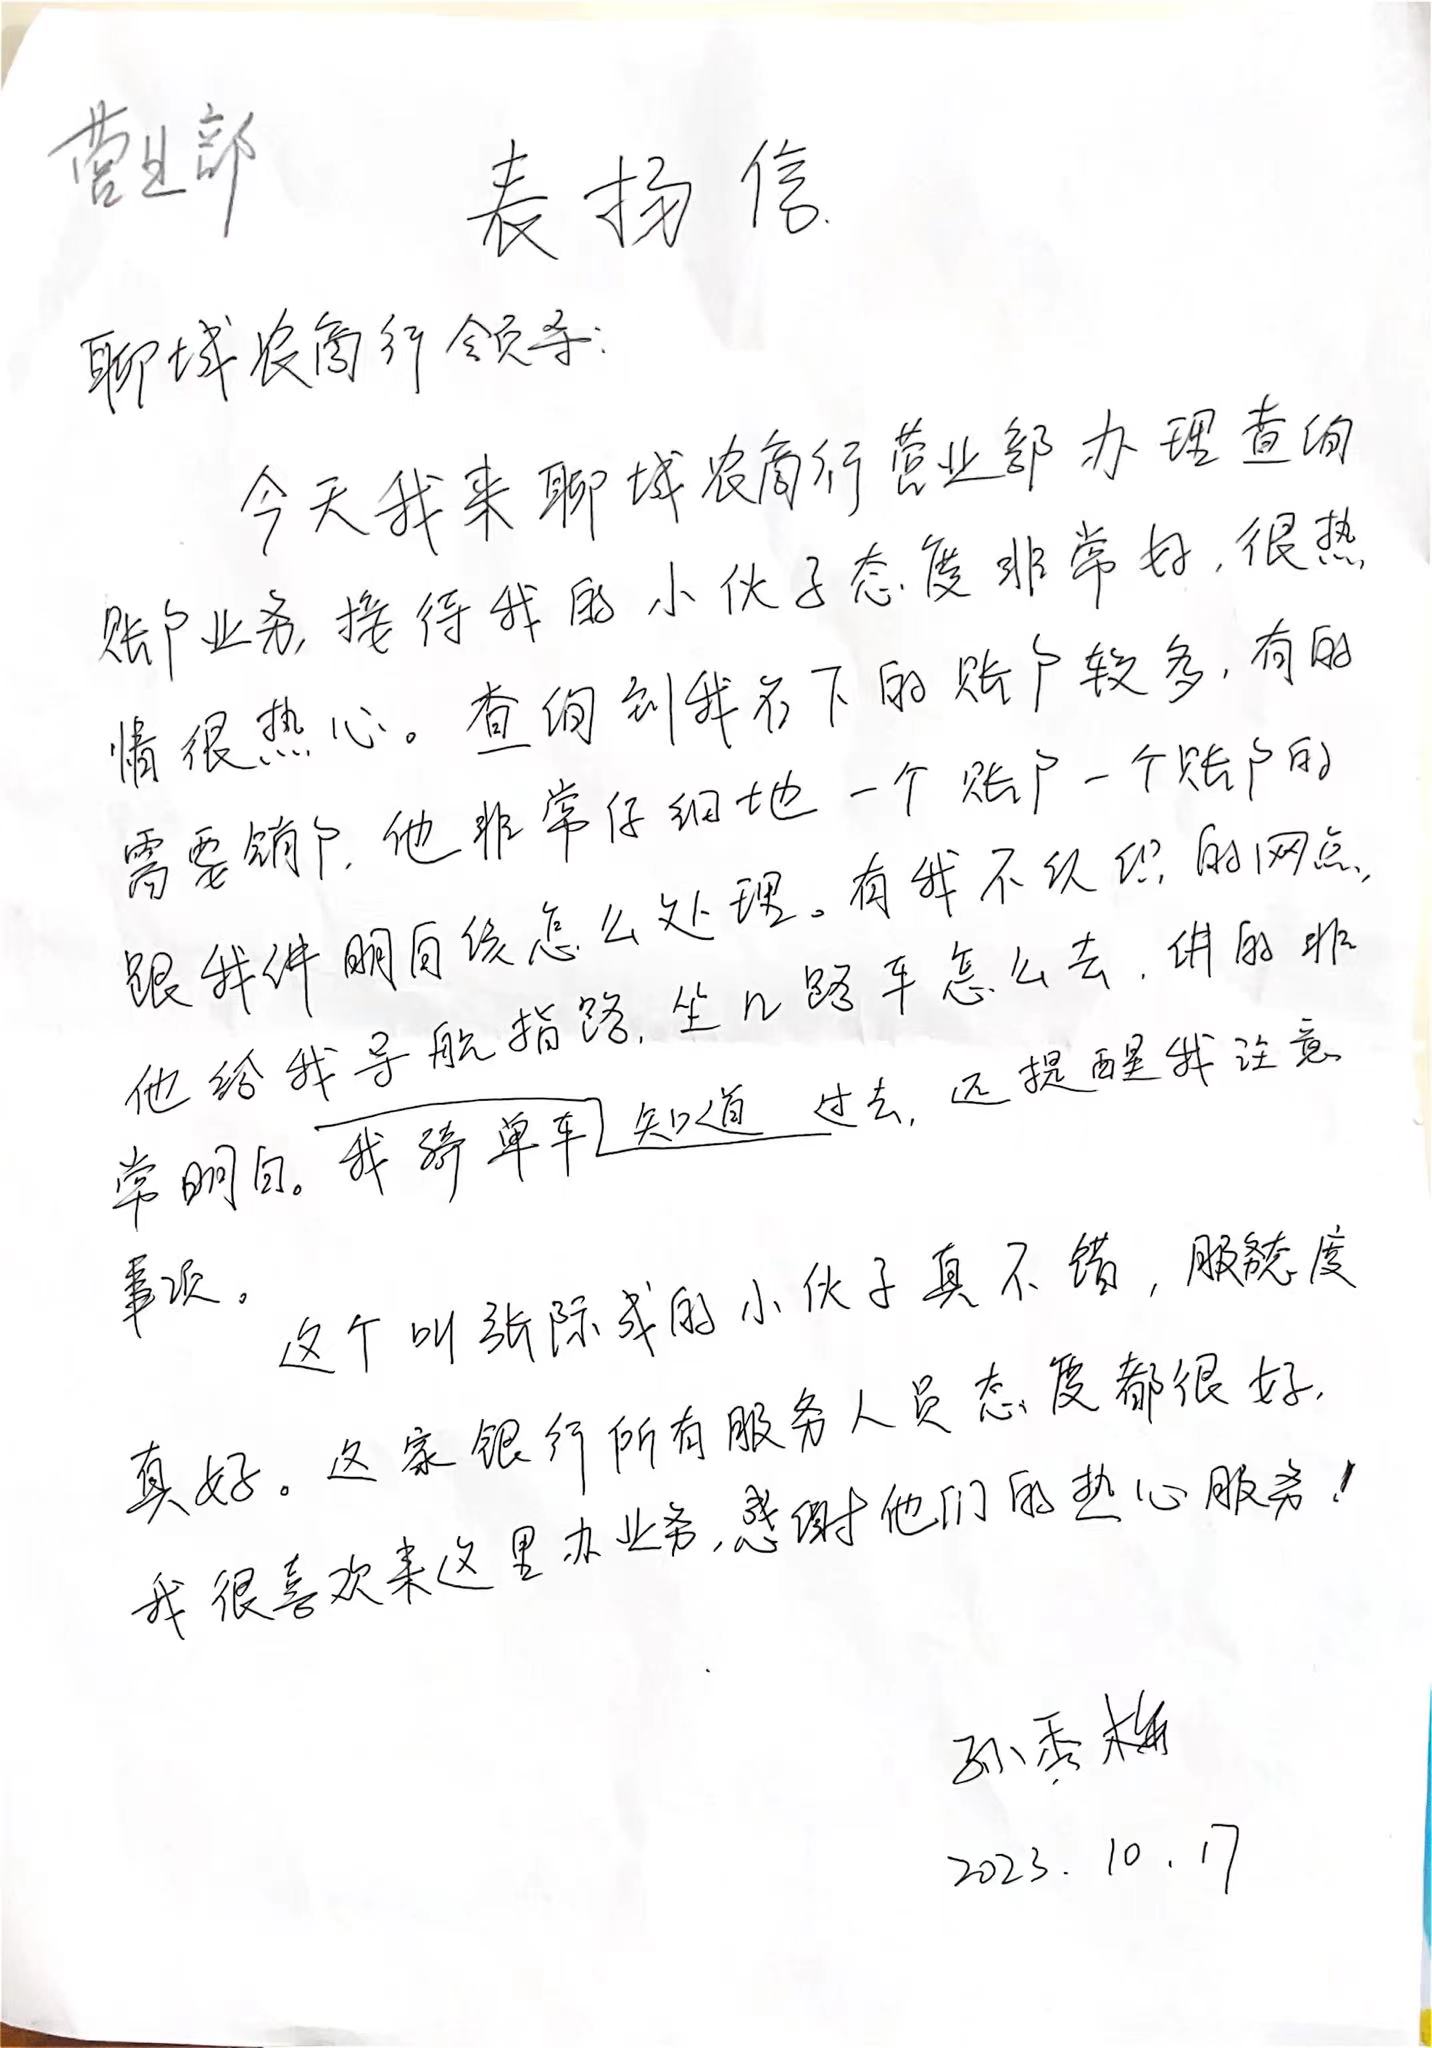 营业部
表扬信
聊城农商行领导:
今天我来聊城农商行营业部办理查询
账户业务,接待我的小伙子态度非常好,很热
情很热心。查询到我名下的账户较多,有的
需要销户,他非常仔细地一个账户一个账户的
跟我讲明白该怎么处理。有我不认识的网点,
他给我导航指路,坐几路车怎么去,讲的非
常明白。我骑单车知道过去,还提醒我注意
事项。
这个叫张际成的小伙子真不错,服务态度
真好。这家银行所有服务人员态度都很好,
我很喜欢来这里办业务,感谢他们的热心服务!
孙秀梅
2023.10.17